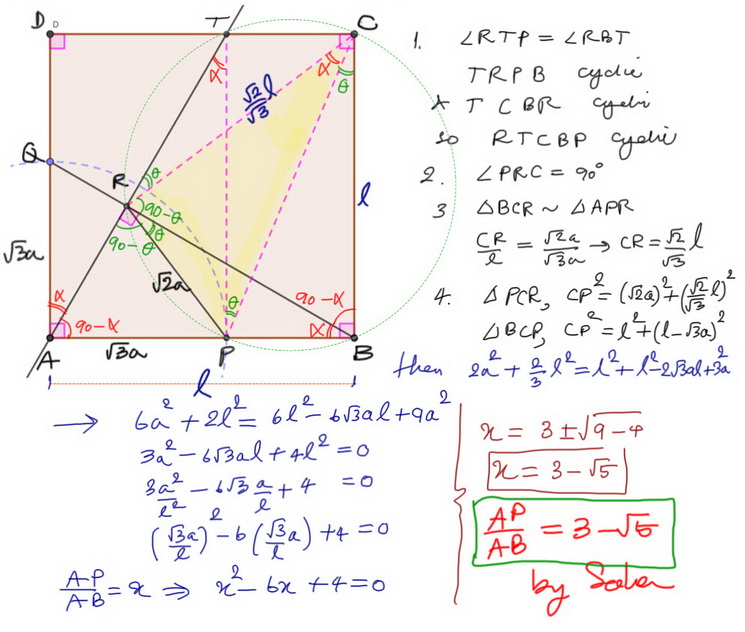 D D T C
α α θ
√2/√3 l
Q
R θ
90-θ
l
90-θ θ
√3a √2a
α θ 90-α
90-α α
A √3a P B
l
1. ∠RTP = ∠RBT
TRPB cyclic
∧ TCBR cyclic
so RTCBP cyclic
2. ∠PRC = 90°
3 △BCR ~ △APR
CR/l = √2a/√3a → CR = √2/√3 l
4. △PCR, CP² = (√2a)² + (√2/√3 l)²
△BCP, CP² = l² + (l-√3a)²
then 2a² + 2/3 l² = l² + l² - 2√3al + 3a²
→ 6a² + 2l² = 6l² - 6√3al + 9a²
3a² - 6√3al + 4l² = 0
3a²/l² - 6√3 a/l + 4 = 0
(√3a/l)² - 6(√3a/l) + 4 = 0
AP/AB = x ⇒ x² - 6x + 4 = 0
x = 3 ± √9-4
x = 3 - √5
AP/AB = 3 - √5
by Saber